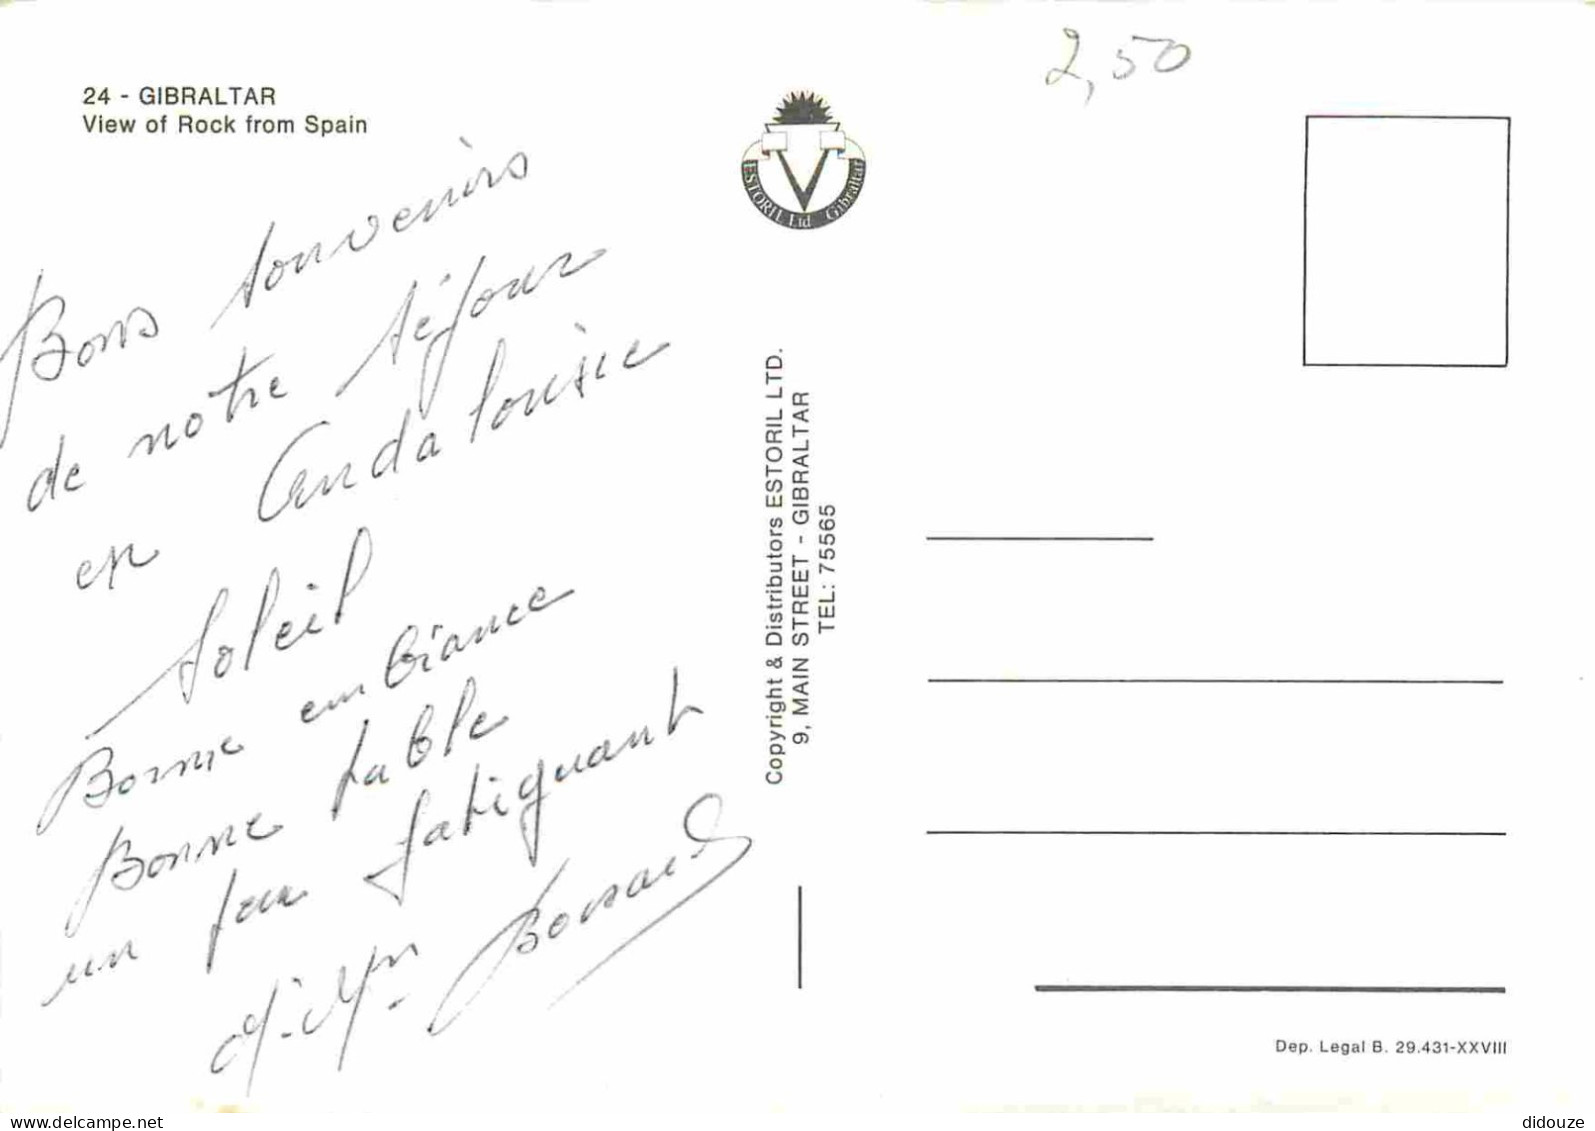 24 - GIBRALTAR
View of Rock from Spain
2,50
ESTORIL Ltd. Gibraltar
Bons souvenirs
de notre séjour
en Andalousie
Soleil
Bonne ambiance
Bonne table
un peu fatiguant
Copyright & Distributors ESTORIL LTD.
9, MAIN STREET - GIBRALTAR
TEL: 75565
Dep. Legal B. 29.431-XXVIII
www.delcampe.net
didouze